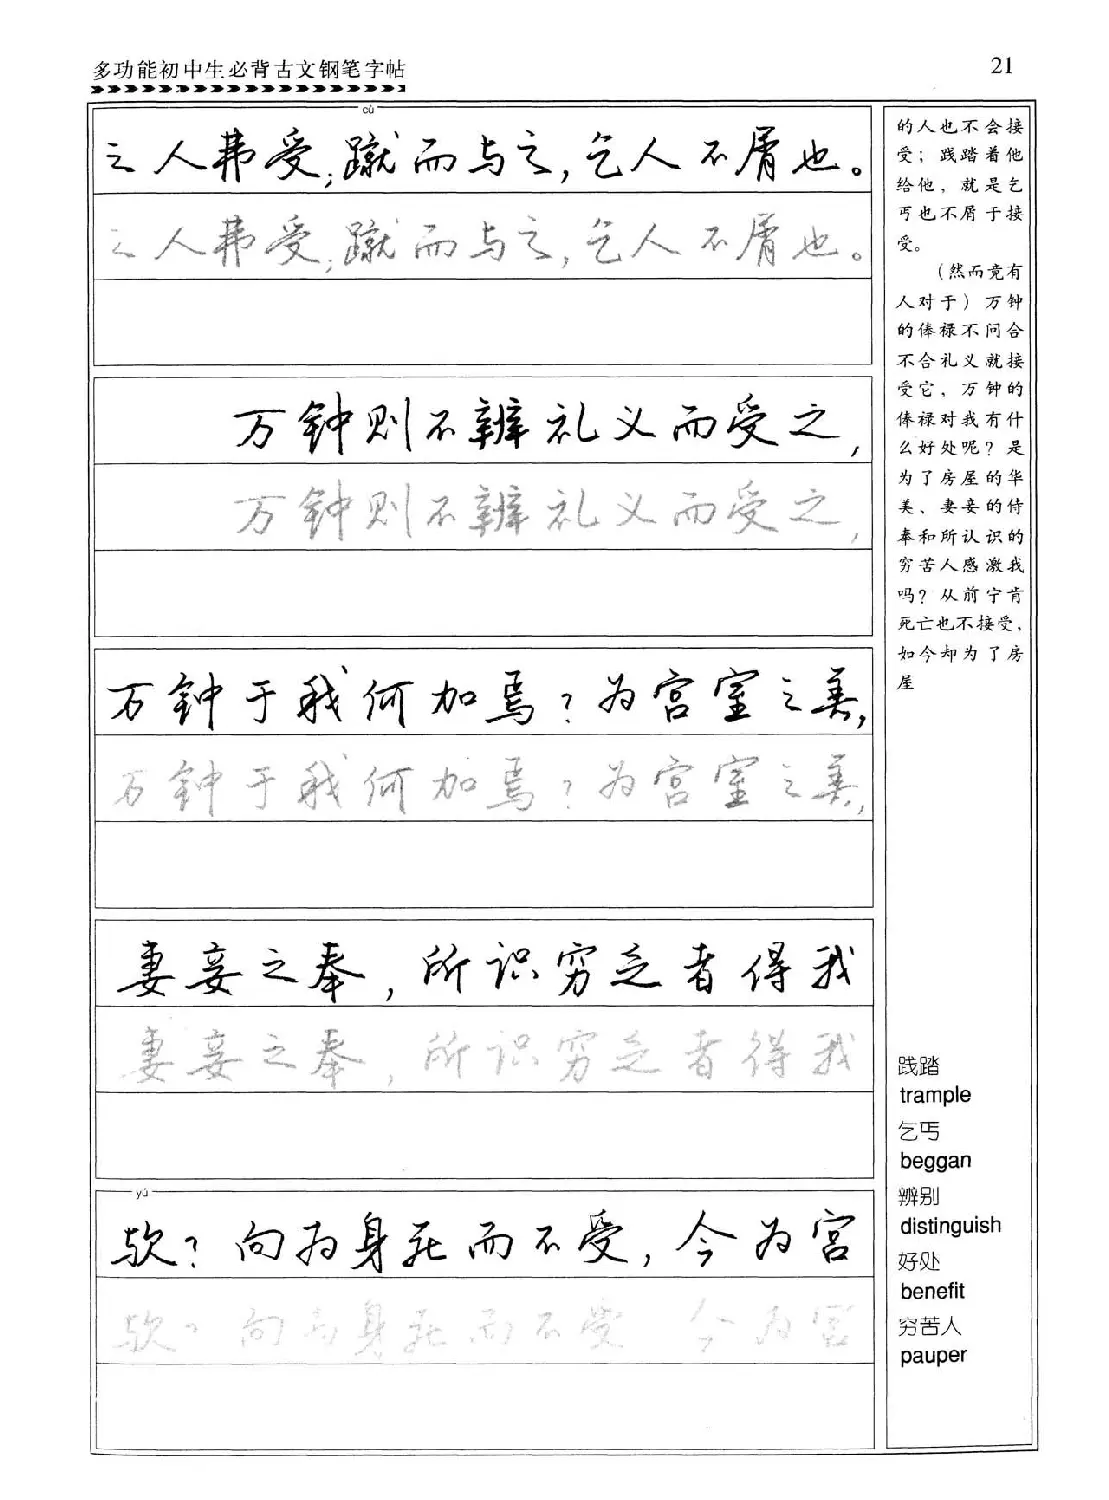 多功能初中生必背古文钢笔字帖
21
cù
之人弗受；蹴而与之，乞人不屑也。
之人弗受；蹴而与之，乞人不屑也。
万钟则不辨礼义而受之，
万钟则不辨礼义而受之，
万钟于我何加焉？为宫室之美，
万钟于我何加焉？为宫室之美，
妻妾之奉，所识穷乏者得我
妻妾之奉，所识穷乏者得我
yú
欤？向为身死而不受，今为宫
欤？向为身死而不受 今为宫
的人也不会接
受；践踏着他
给他，就是乞
丐也不屑于接
受。
（然而竟有
人对于）万钟
的俸禄不问合
不合礼义就接
受它，万钟的
俸禄对我有什
么好处呢？是
为了房屋的华
美、妻妾的侍
奉和所认识的
穷苦人感激我
吗？从前宁肯
死亡也不接受，
如今却为了房
屋
践踏
trample
乞丐
beggan
辨别
distinguish
好处
benefit
穷苦人
pauper